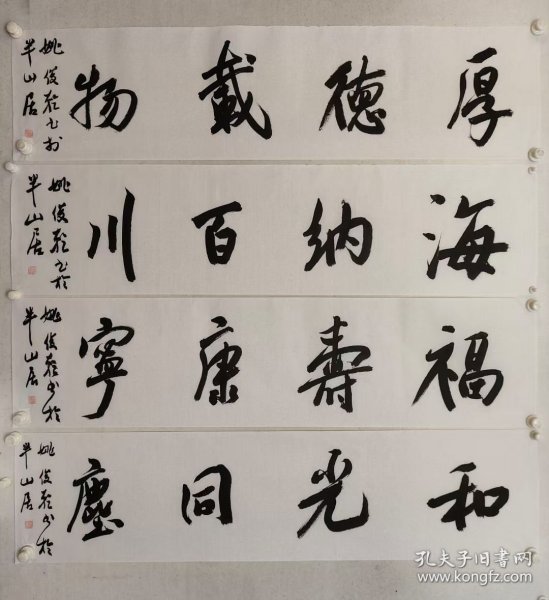 厚德載物
姚俊彪书於
半山居
海納百川
姚俊彪书於
半山居
福壽康寧
姚俊彪书於
半山居
和光同塵
姚俊彪书於
半山居
孔夫子旧书网
kongfz.com